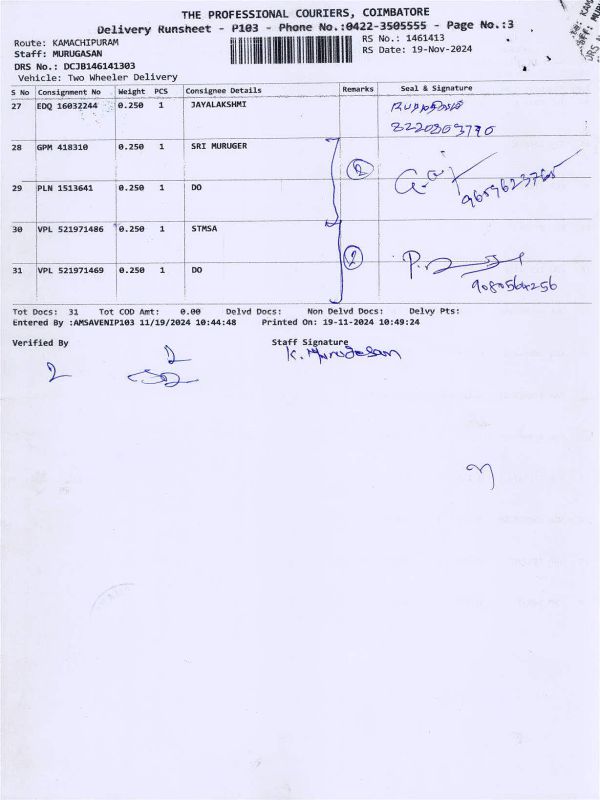 THE PROFESSIONAL COURIERS, COIMBATORE
Delivery Runsheet - P103 - Phone No.:0422-3505555 - Page No.:3
Route: KAMACHIPURAM
RS No.: 1461413
Staff: MURUGASAN
RS Date: 19-Nov-2024
DRS No.: DCJB146141303
Vehicle: Two Wheeler Delivery
S No Consignment No Weight PCS Consignee Details Remarks Seal & Signature
27 EDQ 16032244 0.250 1 JAYALAKSHMI
8220803770
28 GPM 418310 0.250 1 SRI MURUGER
2
29 PLN 1513641 0.250 1 DO
9659623765
30 VPL 521971486 0.250 1 STMSA
2
31 VPL 521971469 0.250 1 DO
9080564256
Tot Docs: 31 Tot COD Amt: 0.00 Delvd Docs: Non Delvd Docs: Delvy Pts:
Entered By :AMSAVENIP103 11/19/2024 10:44:48 Printed On: 19-11-2024 10:49:24
Verified By Staff Signature
K. Murugesan